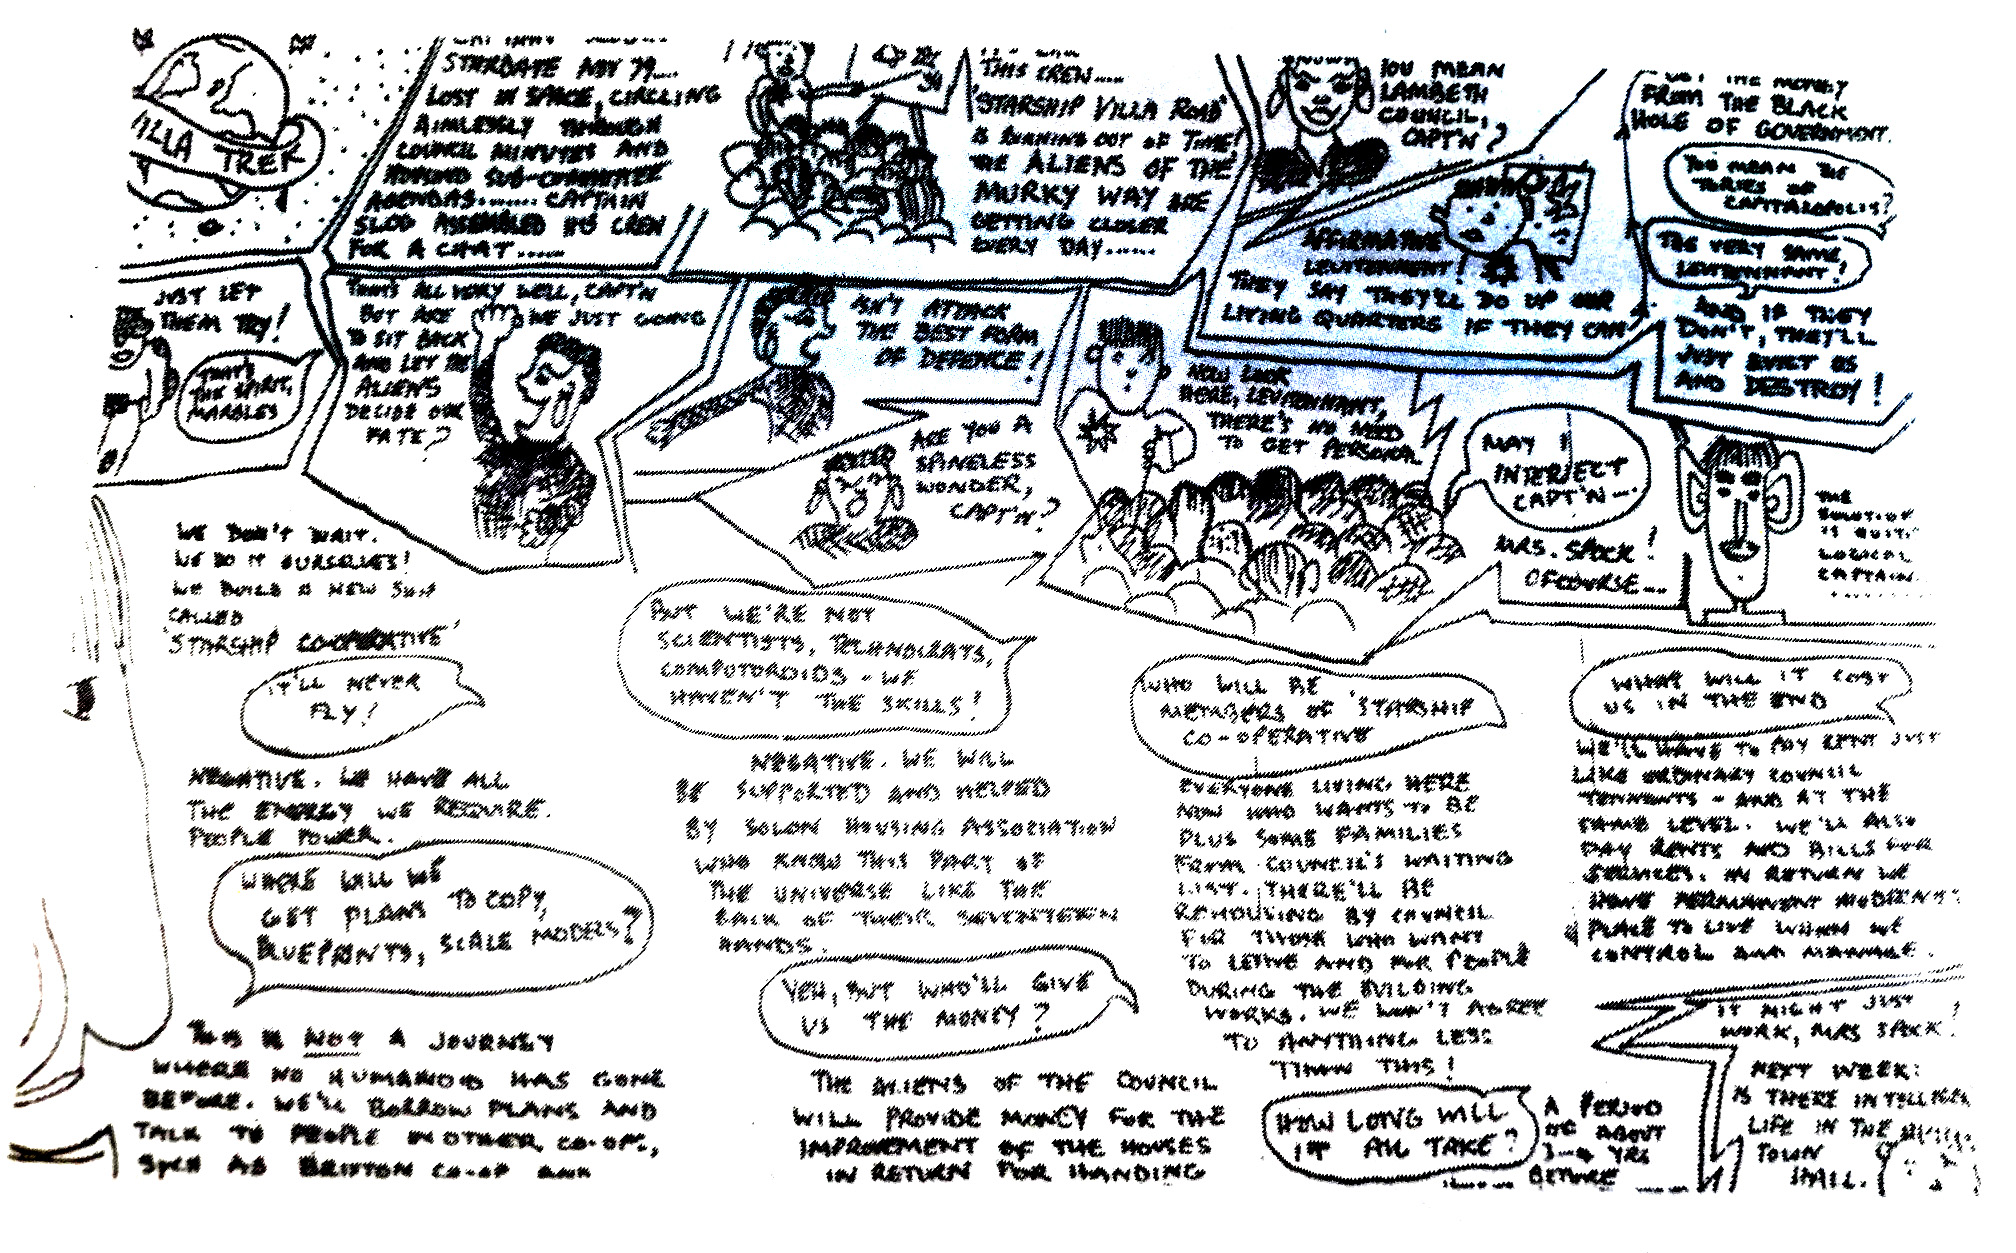 VILLA TREK
STARDATE NOV 79.....
LOST IN SPACE, CIRCLING
AIMLESSLY THROUGH
COUNCIL MINUTES AND
HOUSING SUB-COMMITTEE
AGENDAS........ CAPTAIN
SLOG ASSEMBLED HIS CREW
FOR A CHAT......
THIS CREW.....
'STARSHIP VILLA ROAD'
IS RUNNING OUT OF TIME!
THE ALIENS OF THE
MURKY WAY ARE
GETTING CLOSER
EVERY DAY......
YOU MEAN
LAMBETH
COUNCIL,
CAPT'N?
AFFIRMATIVE
LEUTENNENT!
THEY SAY THEY'LL DO UP OUR
LIVING QUARTERS IF THEY CAN
GET THE MONEY
FROM THE BLACK
HOLE OF GOVERNMENT.
YOU MEAN THE
TORIES OF
CAPITALOPOLIS?
THE VERY SAME,
LEUTENNANT!
AND IF THEY
DON'T, THEY'LL
JUST EVICT US
AND DEZSTROY!
JUST LET
THEM TRY!
THAT'S
THE SPIRIT,
MARBLES
THAT'S ALL VERY WELL, CAPT'N
BUT ARE WE JUST GOING
TO SIT BACK
AND LET THE
ALIENS
DECIDE OUR
FATE?
ISN'T ATTACK
THE BEST FORM
OF DEFENCE!
ARE YOU A
SPINELESS
WONDER,
CAPT'N?
NOW LOOK
HERE, LEUTENNANT,
THERE'S NO NEED
TO GET PERSONAL
MAY I
INTERJECT
CAPT'N....
MRS. SPOCK!
OFCOURSE...
THE
SOLUTION
IS QUITE
LOGICAL
CAPTAIN.
WE DON'T WAIT.
WE DO IT OURSELVES!
WE BUILD A NEW SHIP
CALLED
'STARSHIP CO-OPERATIVE'
IT'LL NEVER
FLY!
NEGATIVE. WE HAVE ALL
THE ENERGY WE REQUIRE.
PEOPLE POWER.
WHERE WILL WE
GET PLANS TO COPY,
BLUEPRINTS, SCALE MODELS?
THIS IS NOT A JOURNEY
WHERE NO HUMANOID HAS GONE
BEFORE. WE'LL BORROW PLANS AND
TALK TO PEOPLE IN OTHER CO-OPS,
SUCH AS BRIXTON CO-OP AND
BUT WE'RE NOT
SCIENTISTS, TECHNOCRATS,
COMPUTOROIDS - WE
HAVEN'T THE SKILLS!
NEGATIVE. WE WILL
BE SUPPORTED AND HELPED
BY SOLON HOUSING ASSOCIATION
WHO KNOW THIS PART OF
THE UNIVERSE LIKE THE
BACK OF THEIR SEVENTEEN
HANDS.
YEH, BUT WHO'LL GIVE
US THE MONEY?
THE ALIENS OF THE COUNCIL
WILL PROVIDE MONEY FOR THE
IMPROVEMENT OF THE HOUSES
IN RETURN FOR HANDING
WHO WILL BE
MEMBERS OF 'STARSHIP
CO-OPERATIVE
EVERYONE LIVING HERE
NOW WHO WANTS TO BE
PLUS SOME FAMILIES
FROM COUNCIL'S WAITING
LIST. THERE'LL BE
REHOUSING BY COUNCIL
FOR THOSE WHO WANT
TO LEAVE AND FOR PEOPLE
DURING THE BUILDING
WORKS. WE WON'T AGREE
TO ANYTHING LESS
THAN THIS!
HOW LONG WILL
IT ALL TAKE?
A PERIOD
OF ABOUT
3-4 YRS
BEFORE
WHAT WILL IT COST
US IN THE END
WE'LL HAVE TO PAY RENT JUST
LIKE ORDINARY COUNCIL
TENNENTS - AND AT THE
SAME LEVEL. WE'LL ALSO
PAY RENTS AND BILLS FOR
SERVICES. IN RETURN WE
HAVE PERMANENT
PLACE TO LIVE WHICH WE
CONTROL AND MANAGE.
IT MIGHT JUST
WORK, MRS SPOCK!
NEXT WEEK:
IS THERE INTELLIGENT
LIFE IN THE
TOWN
HALL.